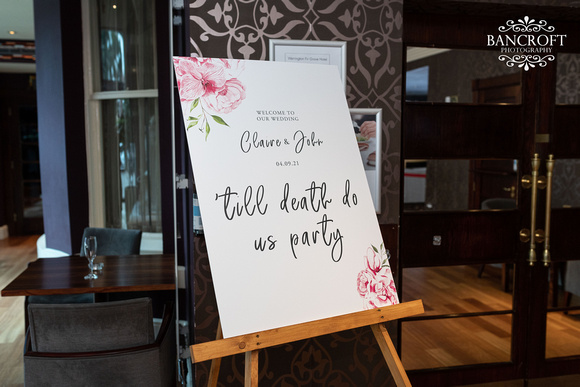 BANCROFT
PHOTOGRAPHY
WELCOME TO
OUR WEDDING
Claire & John
04.09.21
'till death do
us party